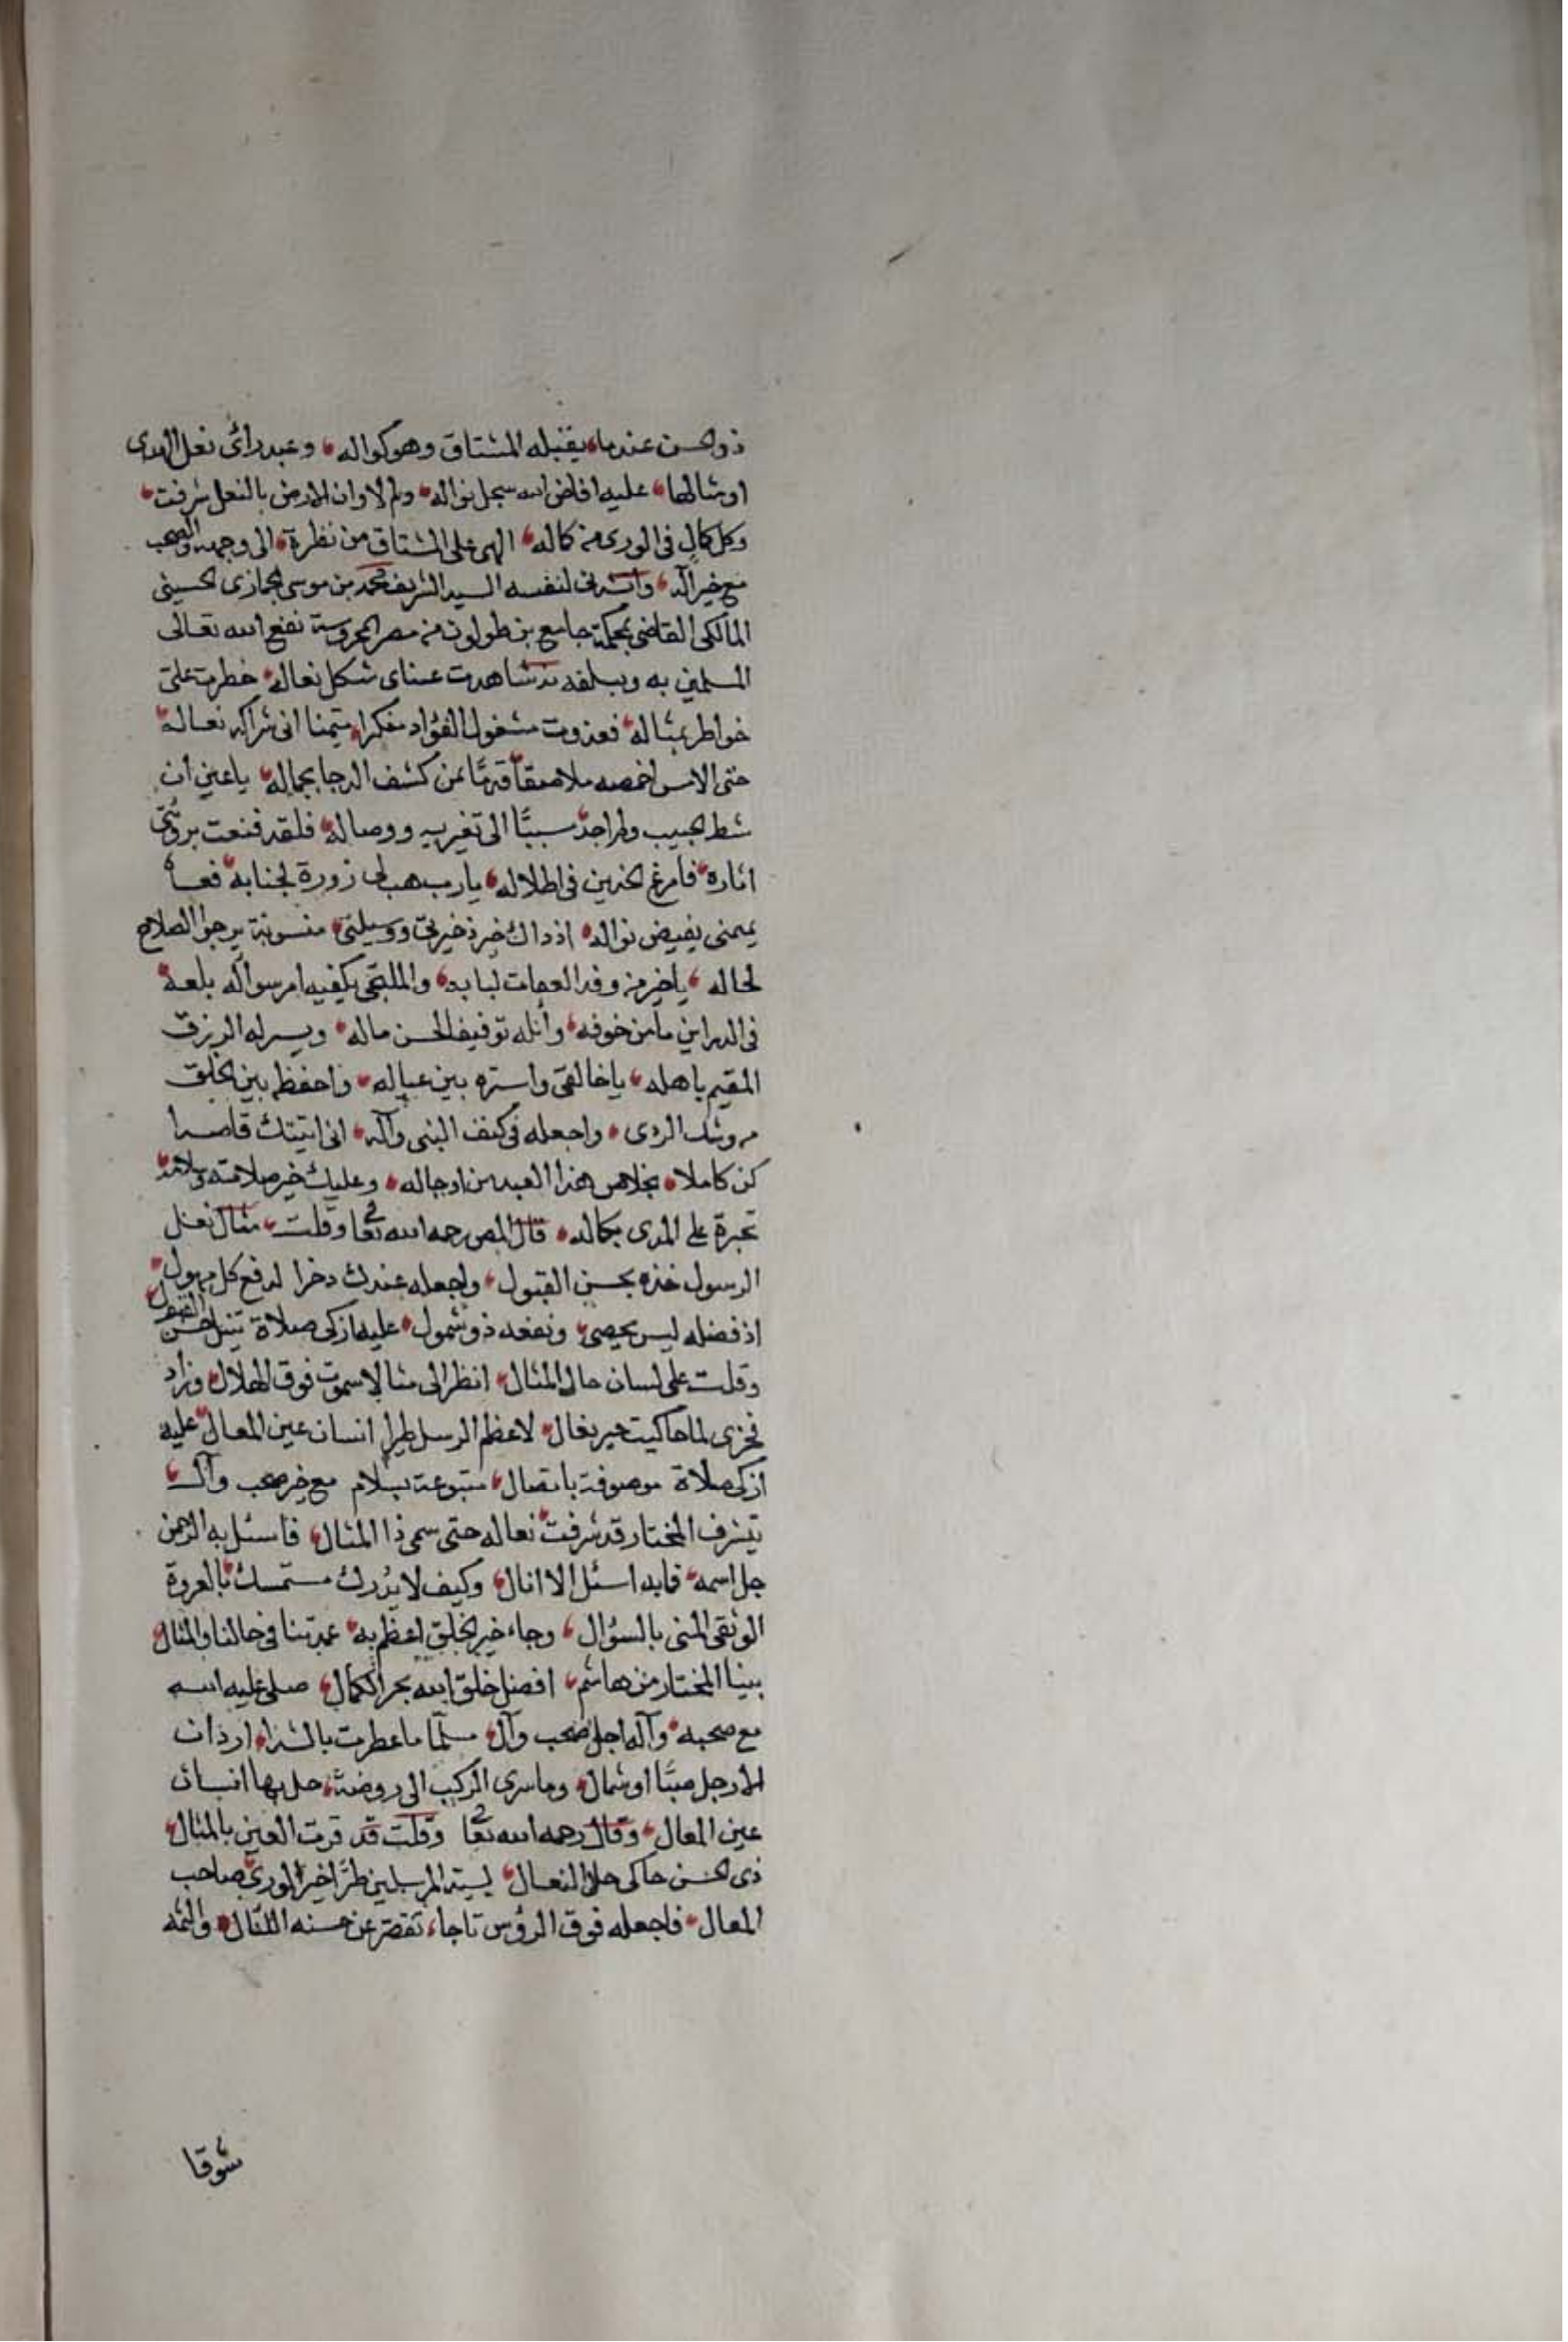 ذو الحسن عندما، يقبله المشتاق وهو كواله، وعبد رأى نعل الهدى
او مثالها، عليه افاض الله سجل نواله، ولم لا وان الارض بالنعل شرفت،
وكل كمال في الورى من كماله، الهى على المشتاق من نظرة، الى وجهه والصحب
مع خير آله، وانشدنى لنفسه السيد الشريف محمد بن موسى الحجازى الحسينى
المالكى القاضى بمحكمة جامع بن طولون من مصر المحروسة نفع الله تعالى
المسلمين به وبسلفه شاهدت عيناى شكل نعاله، خطرت على
خواطر بمثاله، فغذوت مشغول الفؤاد مفكرا، متيمنا انى شراك نعاله،
حتى الامس اخمصه ملاصقا، قدمًا لمن كشف الدجا بجماله، ياعين ان
شط الحبيب ولم اجد، سببًا الى تقريبه ووصاله، فلقد قنعت برؤيتى
اثاره، فامرغ الخدين فى اطلاله، يارب هب لى زورة لجنابه، فعساه
يمنحنى بفيض نواله، اذ ذاك خير ذخيرتى ووسيلتى، يرجو الصلاح
لحاله، ياخير من وفد العفات لبابه، والملتجى يكفيه امر سوآله بلغه،
فى الدراين مأمن خوفه، وأنله توفيقا لحسن ماله، ويسر له الرزق
المقيم باهله، ياخالقى واستره بين عياله، واحفظ بين الخلق
الردى، واجعله فى كنف النبى وآله، انى اتيتك قاصدا
كن كاملا، بخلاص هذا العبد من اوجاله، وعليك خير صلاته وسلامه،
على المدى بكماله، قال المص رحمه الله تعا وقلت، مثال نعل
الرسول خذه بحسن القبول، واجعله عندك دخرا لدفع كل مهول،
اذ فضله ليس يحصى، ونفعه ذو شمول، عليه ازكى صلاة تنيل حسن القبول،
وقلت على لسان حال المثال، انظر الى مثالا سموت فوق الهلال، وزاد
فخرى لما حاكيت خير نعال، لاعظم الرسل طرا، انسان عين المعال، عليه
ازكى صلاة موصوفة باتصال، متبوعة بسلام مع خير صحب وآل،
بشرف المختار قد شرفت، نعاله حتى سمى ذا المثال، فاسئل به الرحمن
جل اسمه، فابه اسئل الا انال، وكيف لا يدرك مستمسك، بالعروة
الوثقى المنى بالسؤال، وجاء خير الخلق اعظم به، عمدتنا فى حالنا والمثال،
نبينا المختار من هاشم، افضل خلق الله بحر الكمال، صلى عليه الله
مع صحبه، وآله اجل صحب وآل، مسلّما ما عطرت بالشذا، اردان
الارجل صبًا او شمال، وما سرى الركب الى روضة، حل بها انسان
عين المعال، وقال رحمه الله تعا وقلت قد قرت العين بالمثال،
ذى الحسن حاكى حلى النعال، لسيد المرسلين طرًا خير الورى، صاحب
المعال، فاجعله فوق الرؤس تاجا، تقصر عن حسنه اللئال، والثمه
شوقا